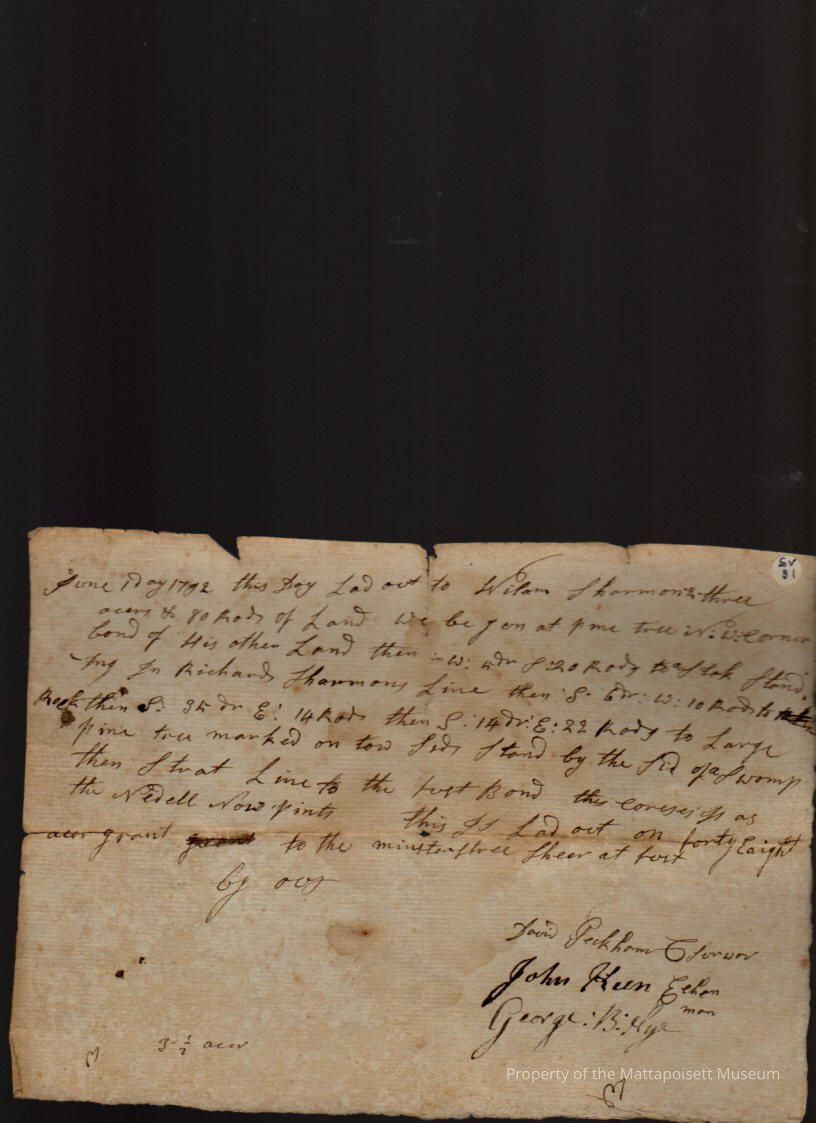 SV
91
June 1 Day 1792 this Day Lad out to Wilam Sharmon three
acers & 80 Rods of Land we be gon at pine tree N:W: Corner
bond of His other Land then W: dr S: 20 Rods to a Stak Stand
Ing In Richard Sharmons Line then S: dr: W: 10 Rods to
Rock then S: 35 dr E: 14 Rods then S: 14 dr: E: 22 Rods to Large
pine tree marked on tow Sids Stand by the Sid of a Swomp
then Strat Line to the furst Bond this as
the Nedell Now pints this Is Lad out on forty Eaight
acer grant to the Sheer at furst
by ous
David Peckham
John Keen
George: B: Nye
man
3-½ acer
3
3
Property of the Mattapoisett Museum